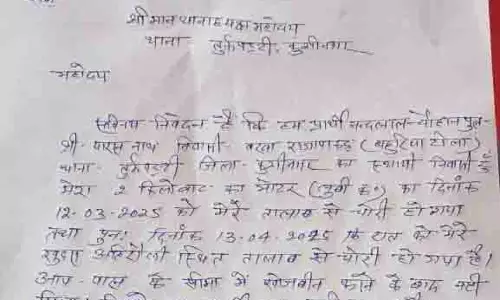 श्रीमान थानाध्यक्ष महोदय
थाना तुर्कपट्टी, कुशीनगर
महोदय
सविनय निवेदन है कि हम प्रार्थी नन्दलाल चौहान पुत्र
श्री पारस नाथ निवासी (बहुरिया टोला)
थाना तुर्कपट्टी जिला - कुशीनगर का स्थायी निवासी हूँ
मेरा 2 किलोवाट का मोटर का दिनांक
12-03-2025 को मेरे तालाब से चोरी हो गया
तथा पुनः दिनांक 13-04-2025 के रात को मेरे
स्थित तालाब से चोरी हो गया है।
आप-पास के सीमा में खोजबीन करने के बाद नही